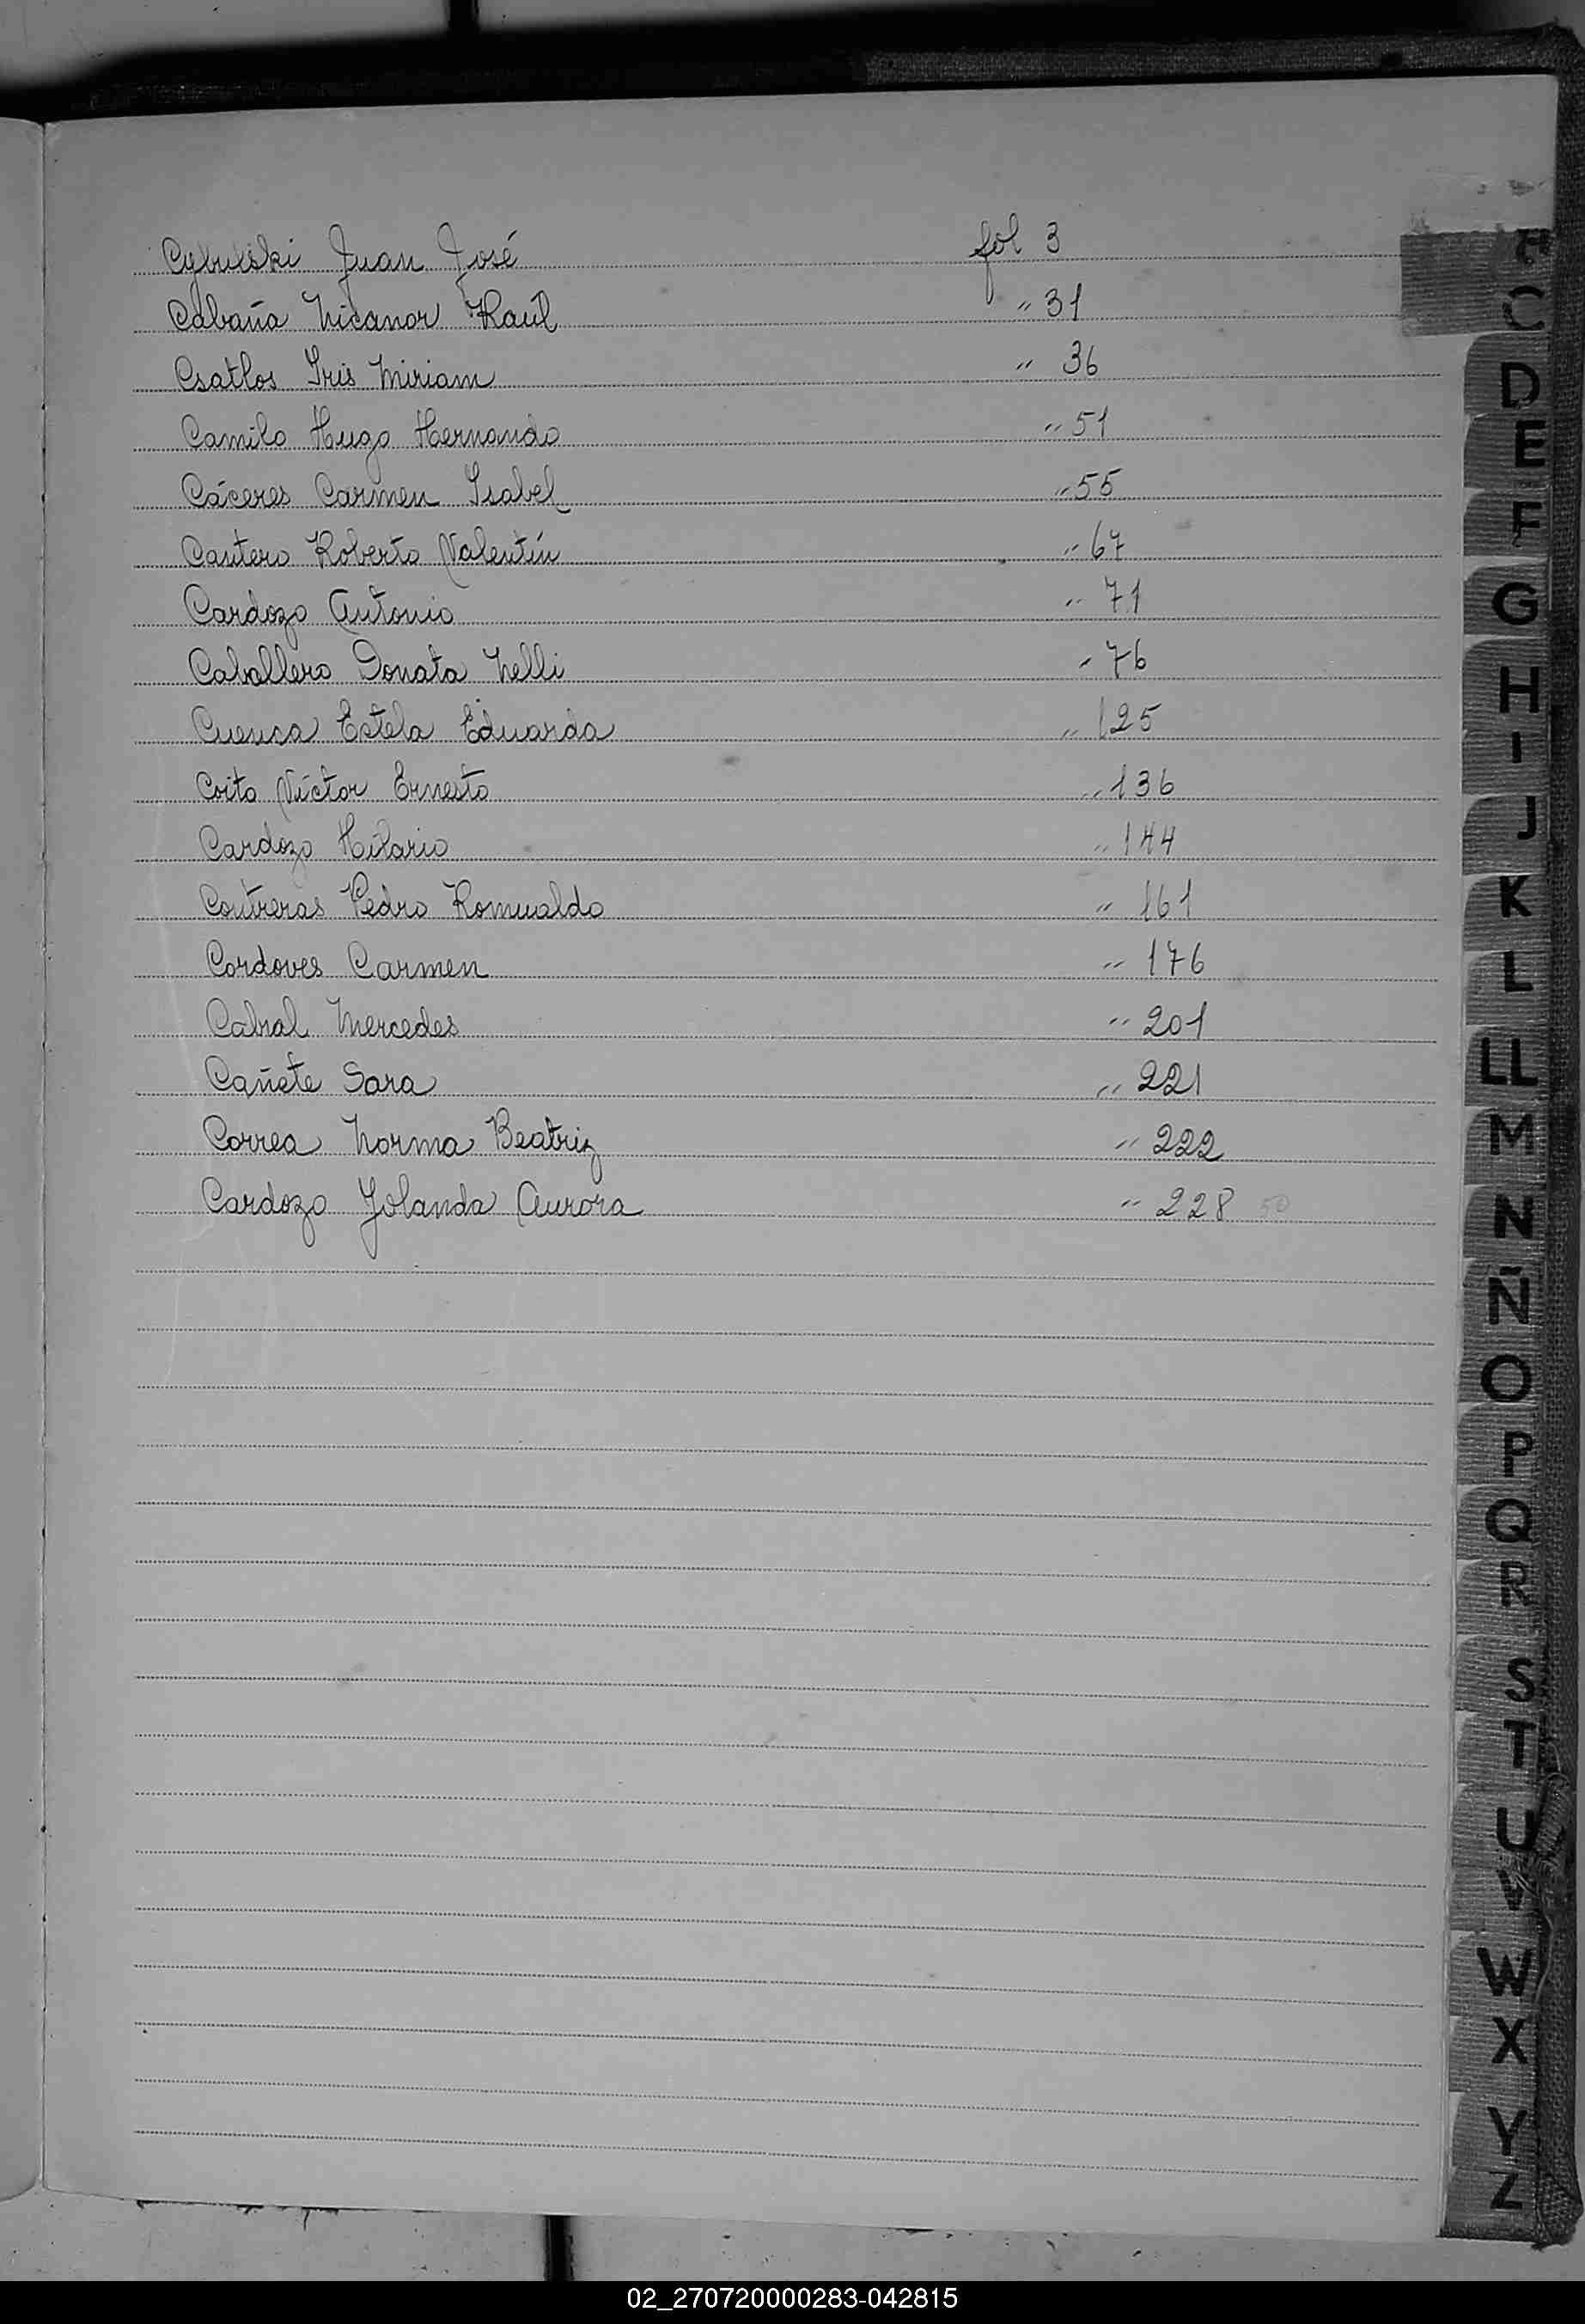 Cybulski Juan José fol 3
Cabaña Nicanor Raúl " 31
Csatlos Iris Miriam " 36
Camilo Hugo Hernando " 51
Cáceres Carmen Isabel " 55
Cantero Roberto Valentín " 67
Cardozo Antonio " 71
Caballero Donata Nelli " 76
Cuenca Estela Eduarda " 125
Coito Víctor Ernesto " 136
Cardozo Hilario " 144
Contreras Pedro Romualdo " 161
Cordoves Carmen " 176
Cabral Mercedes " 201
Cañete Sara " 221
Correa Norma Beatriz " 222
Cardozo Yolanda Aurora " 228
C
D
E
F
G
H
I
J
K
L
LL
M
N
Ñ
O
P
Q
R
S
T
U
V
W
X
Y
Z
02_270720000283-042815